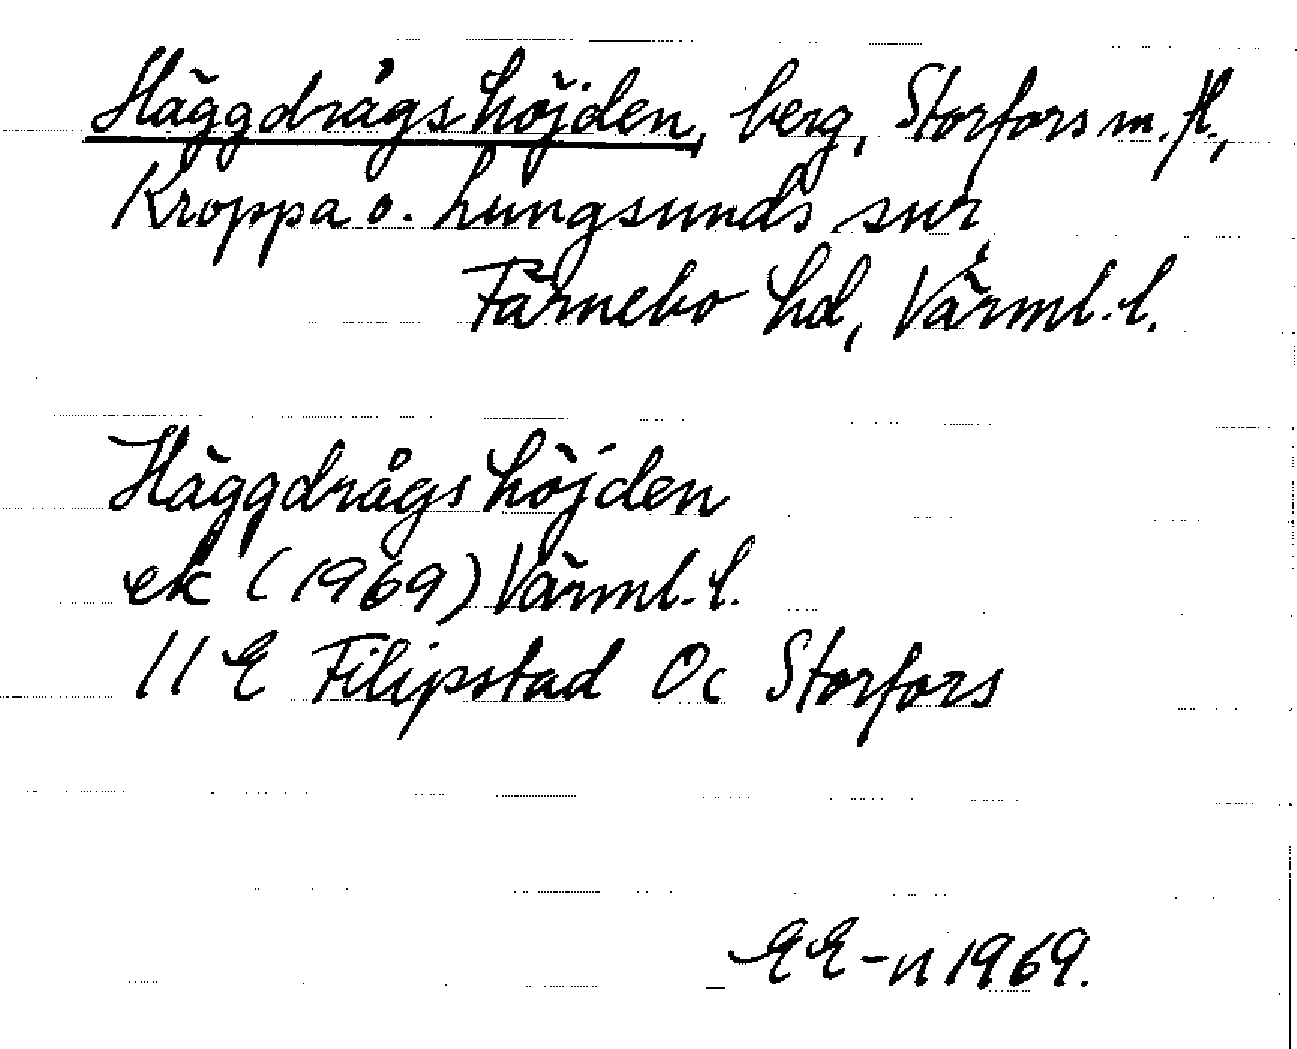 Häggdrågshöjden, berg, Storfors m. fl.,
Kroppa o. Lungsunds snr,
Färnebo hd, Värml. l.
Häggdrågshöjden
ek (1969) Värml. l.
11 E Filipstad 0c Storfors
EE-n 1969.